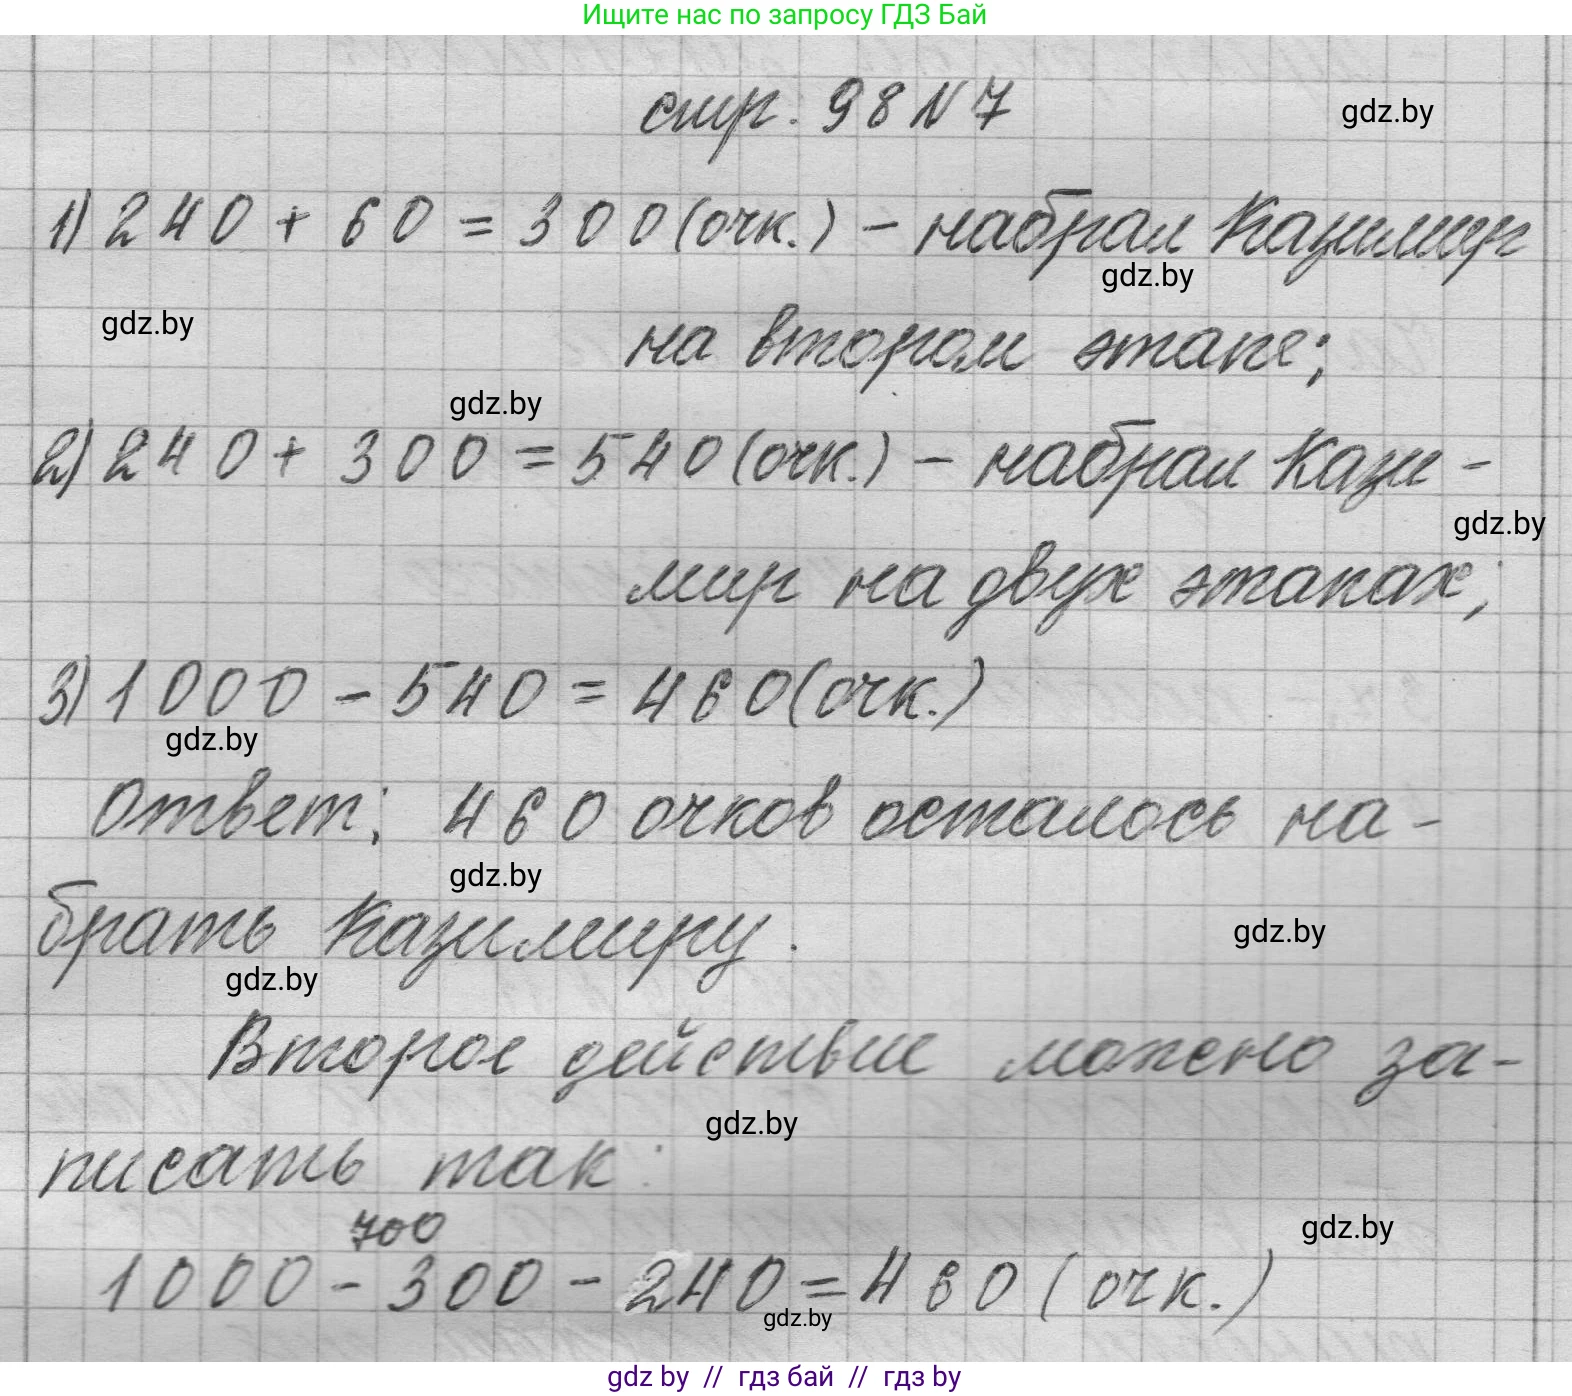 Ищите нас по запросу ГДЗ Бай
стр. 98 N 7
gdz.by
1) 240 + 60 = 300 (очк.) - набрал Казимир
gdz.by
на втором этапе;
gdz.by
gdz.by
2) 240 + 300 = 540 (очк.) - набрал Кази-
gdz.by
мир на двух этапах;
3) 1000 - 540 = 460 (очк.)
gdz.by
Ответ: 460 очков осталось на-
gdz.by
брать Казимиру.
gdz.by
gdz.by
Второе действие можно за-
gdz.by
писать так:
700
gdz.by
1000 - 300 - 240 = 460 (очк.)
gdz.by
gdz by // гдз бай // гдз by